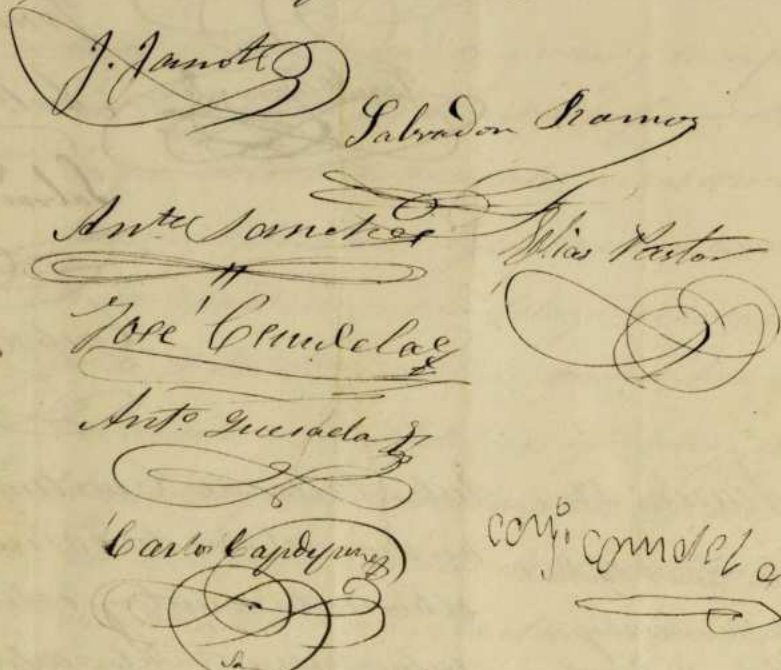 J. Jamott
Salvador Ramos
Ant.º Sanchez
Elias Pastor
José Candela
Ant.º Quesada
Carlos Capdepon
Cay.º Candela